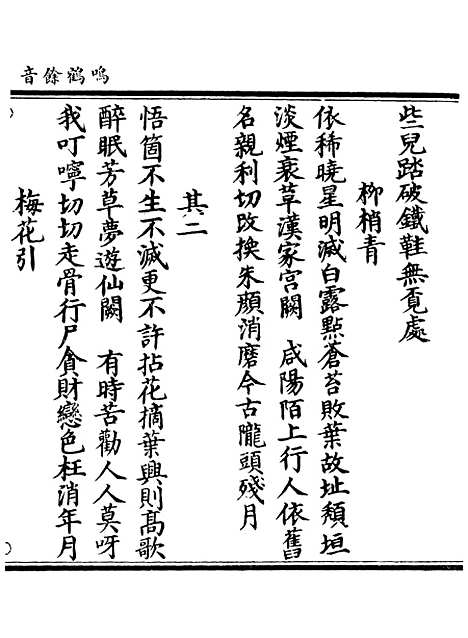 鳴鶴餘音
些兒踏破鐵鞋無覔處
柳梢青
依稀曉星明滅白露點蒼苔敗葉故址頹垣
淡煙衰草漢家宮闕　咸陽陌上行人依舊
名親利切改換朱顏消磨今古隴頭殘月
其二
悟箇不生不滅更不許拈花摘葉興則高歌
醉眠芳草夢遊仙闕　有時苦勸人人莫呀
我叮嚀切切走骨行尸貪財戀色枉消年月
梅花引